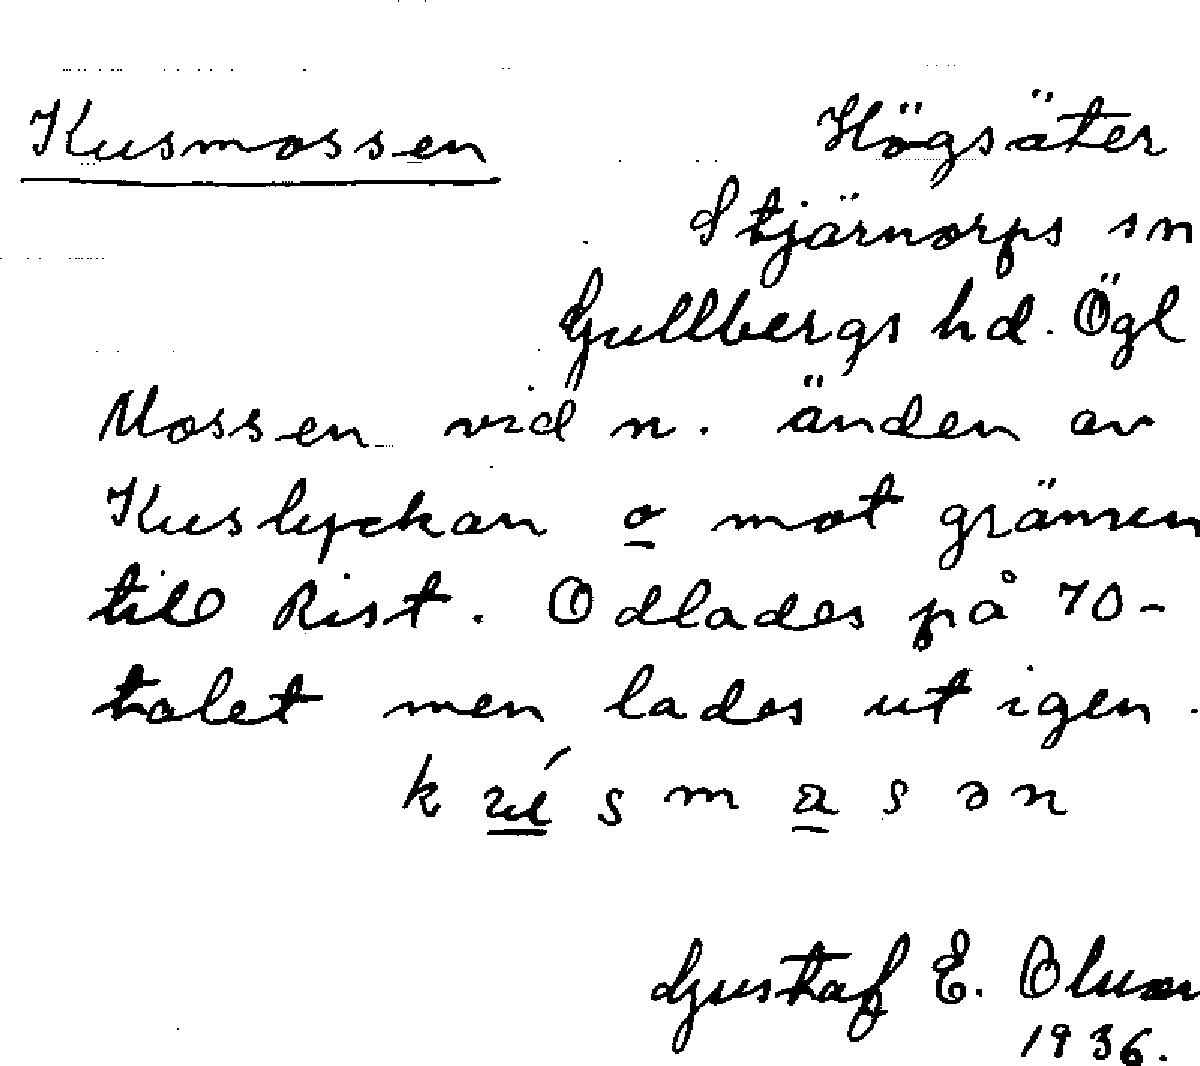 Kusmossen
Högsäter
Stjärnorps sn
Gullbergs hd. Ögl
Mossen vid n. änden av
Kuslyckan o mot gränsen
till Rist. Odlades på 70-
talet men lades ut igen.
Gustaf E. 
1936.